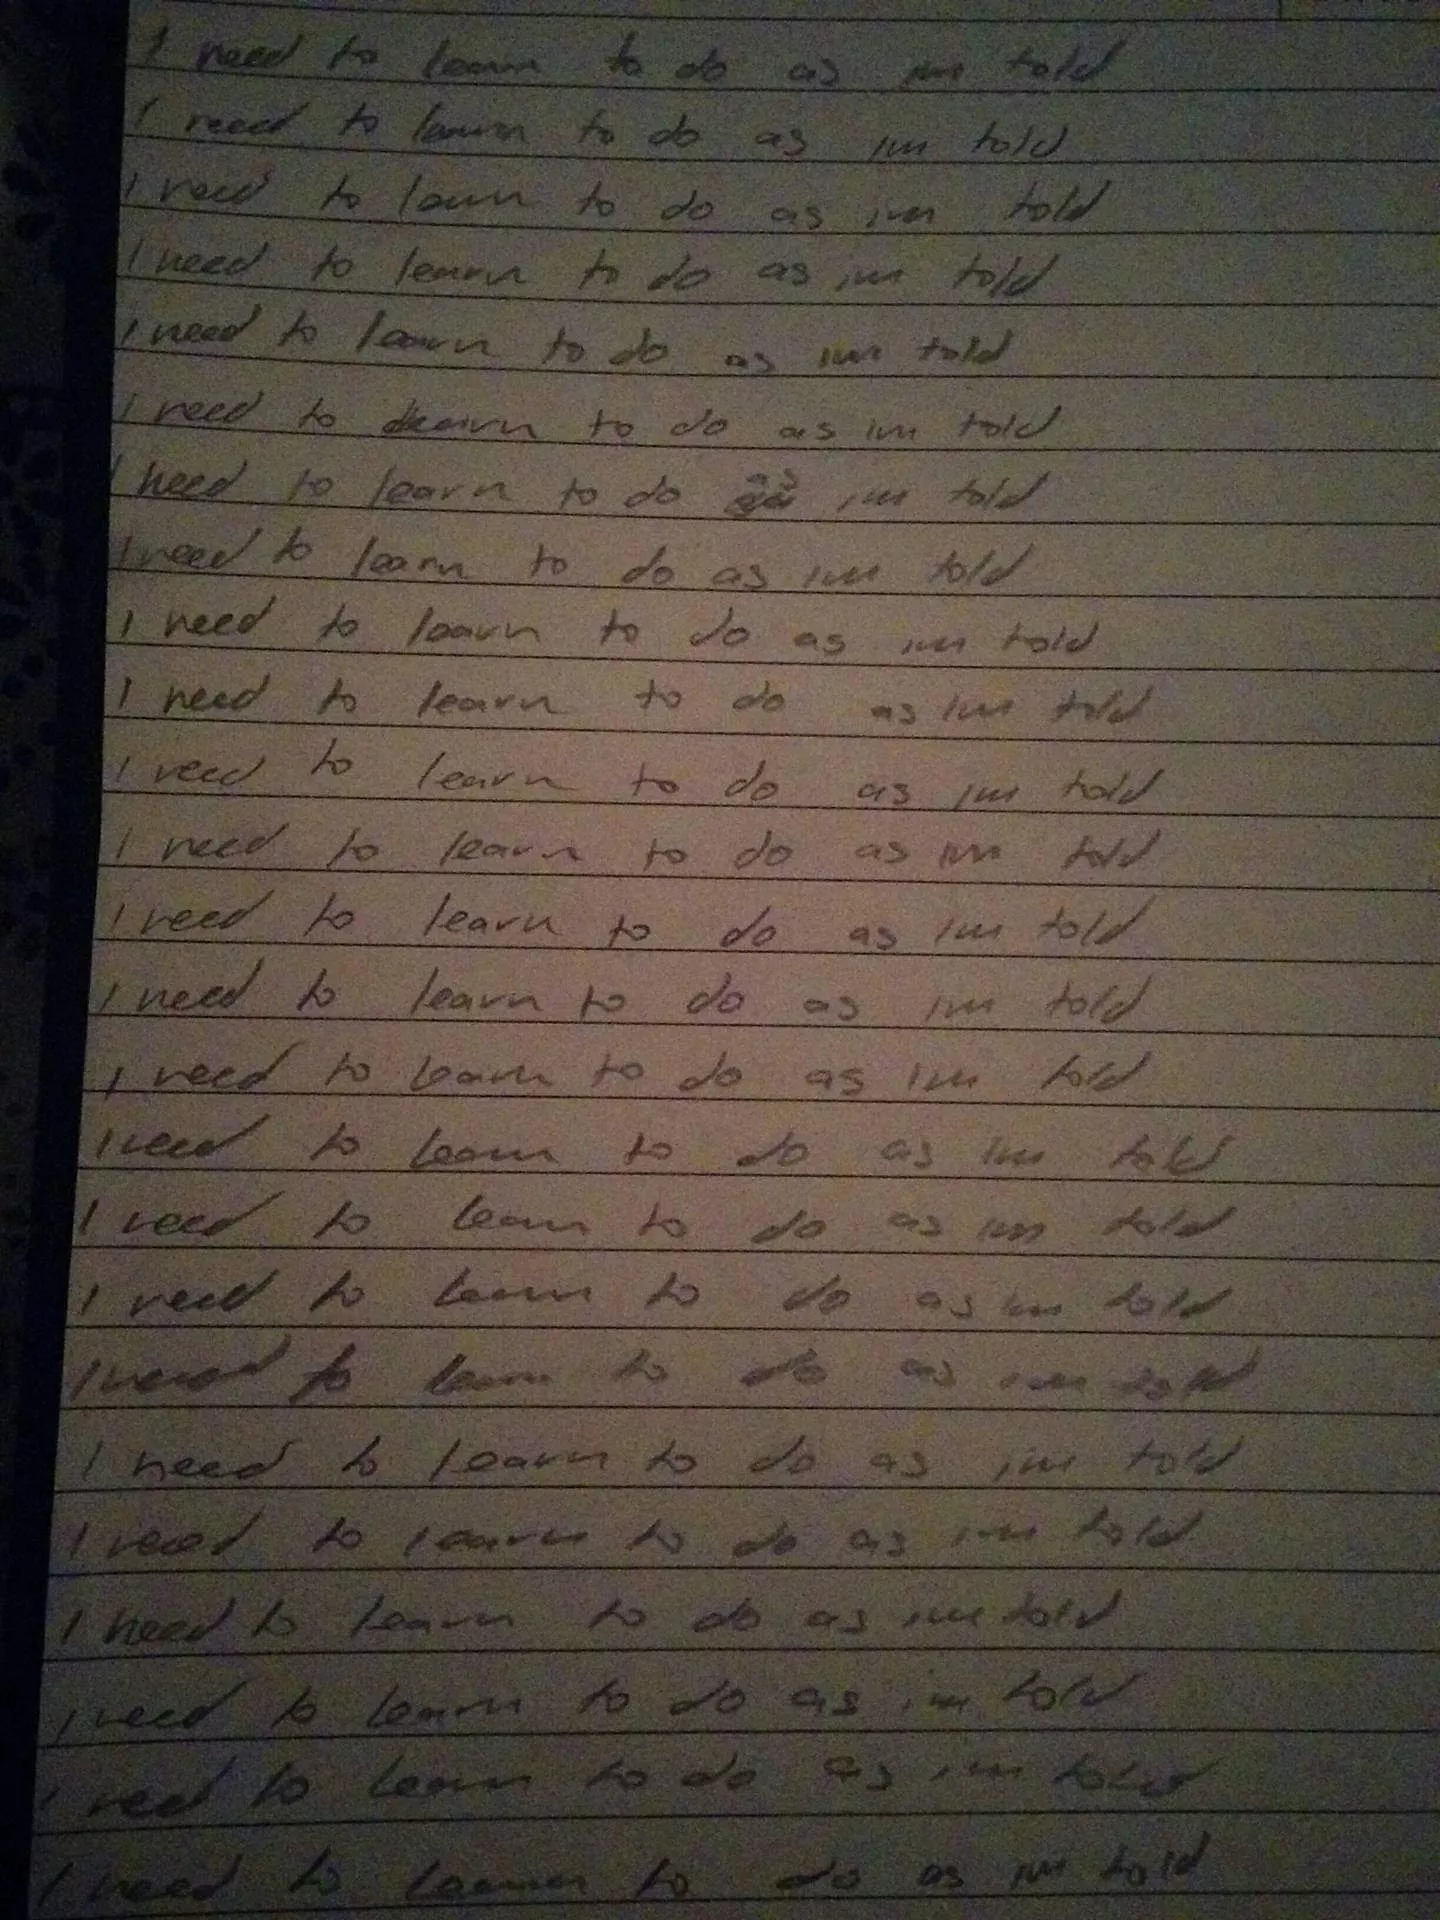 I need to learn to do as im told
I need to learn to do as im told
I need to learn to do as im told
I need to learn to do as im told
I need to learn to do as im told
I need to learn to do as im told
I need to learn to do as im told
I need to learn to do as im told
I need to learn to do as im told
I need to learn to do as im told
I need to learn to do as im told
I need to learn to do as im told
I need to learn to do as im told
I need to learn to do as im told
I need to learn to do as im told
I need to learn to do as im told
I need to learn to do as im told
I need to learn to do as im told
I need to learn to do as im told
I need to learn to do as im told
I need to learn to do as im told
I need to learn to do as im told
I need to learn to do as im told
I need to learn to do as im told
I need to learn to do as im told